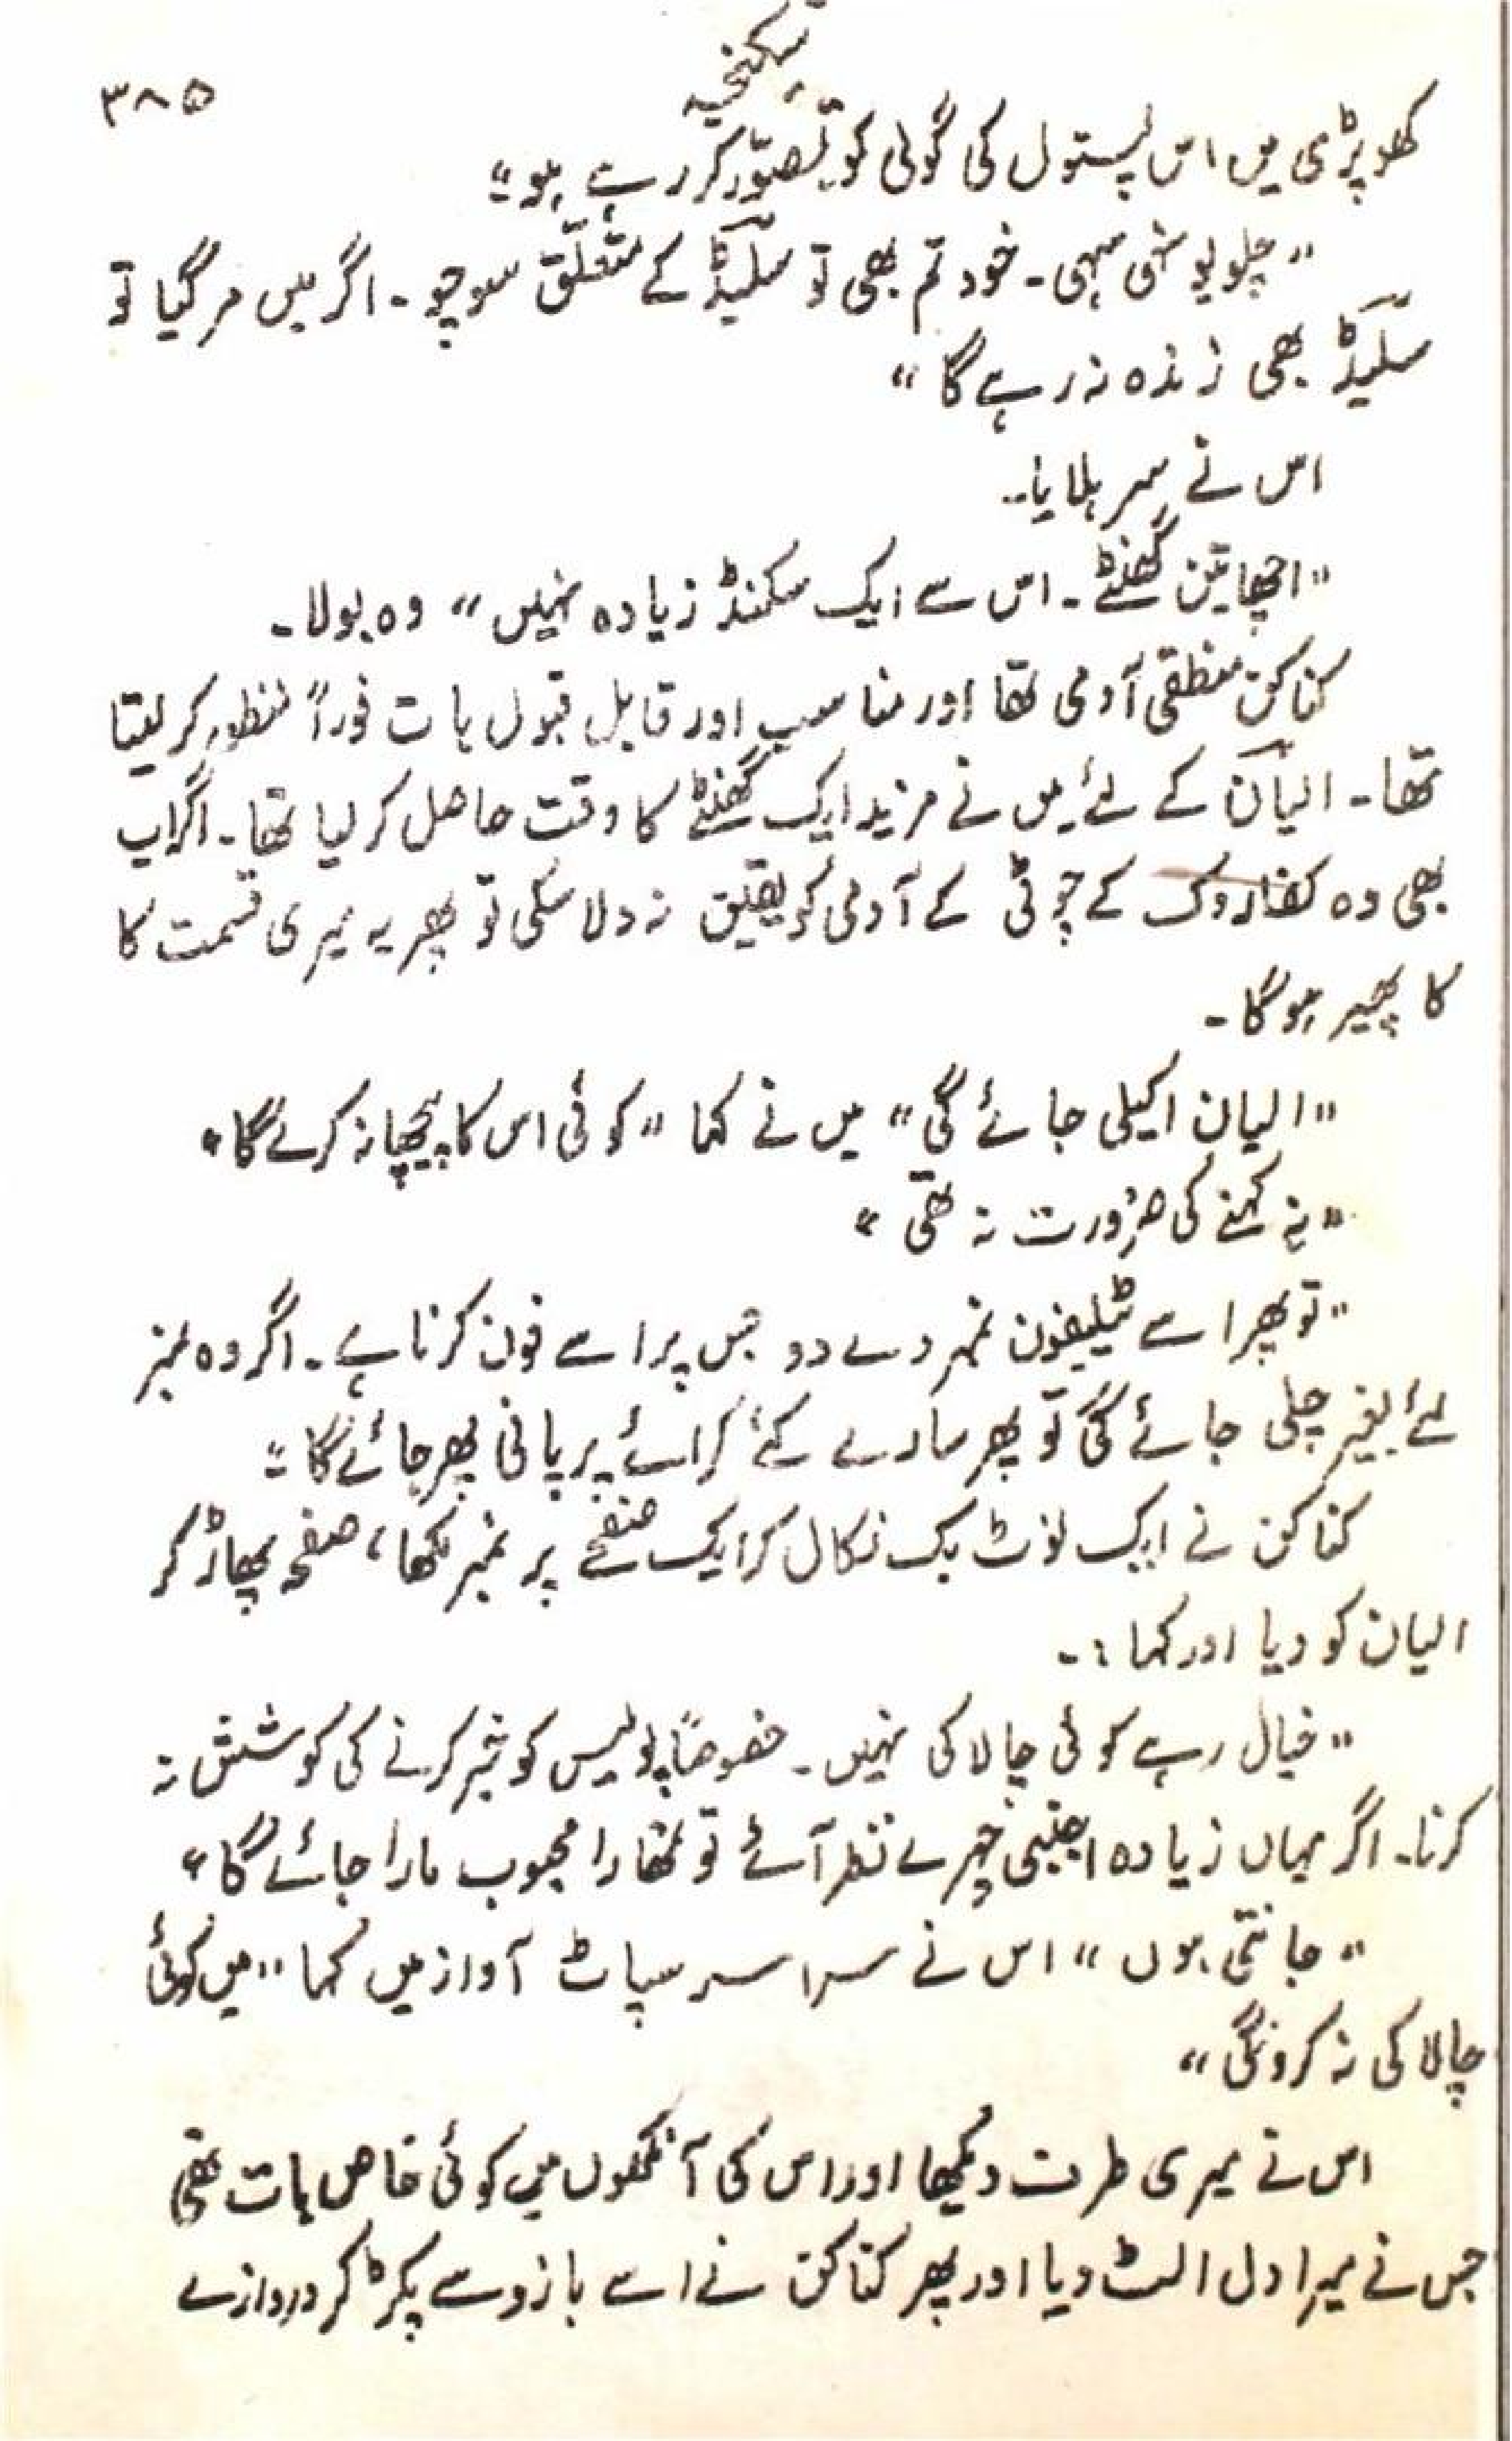 شکنجہ
۳۸۵
کھوپڑی میں اس پستول کی گولی کو تصوّر کر رہے ہو"
"چلو یونہی سہی۔ خود تم بھی تو سلیڈ کے متعلّق سوچو۔ اگر میں مر گیا تو
سلیڈ بھی زندہ نہ رہے گا"
اس نے سر ہلایا۔
"اچھا تین گھنٹے۔ اس سے ایک سکنڈ زیادہ نہیں" وہ بولا۔
کناکن منطقی آدمی تھا اور مناسب اور قابل قبول بات فوراً منظور کر لیتا
تھا۔ الیان کے لئے میں نے مزید ایک گھنٹے کا وقت حاصل کر لیا تھا۔ اگر اب
بھی وہ کفلاروک کے چوٹی کے آدمی کو یقین نہ دلا سکی تو پھر یہ میری قسمت کا
کا پھیر ہو گا۔
"الیان اکیلی جائے گی" میں نے کہا "کوئی اس کا پیچھا نہ کرے گا"
"یہ کہنے کی ضرورت نہ تھی"
"تو پھر اسے ٹیلیفون نمبر دے دو جس پر اسے فون کرنا ہے۔ اگر وہ نمبر
لئے بغیر چلی جائے گی تو پھر سارے کئے کرائے پر پانی پھر جائے گا"
کناکن نے ایک نوٹ بک نکال کر ایک صفحے پر نمبر لکھا، صفحہ پھاڑ کر
الیان کو دیا اور کہا :۔
"خیال رہے کوئی چالاکی نہیں۔ خصوصاً پولیس کو خبر کرنے کی کوشش نہ
کرنا۔ اگر یہاں زیادہ اجنبی چہرے نظر آئے تو تمھارا محبوب مارا جائے گا"
"جانتی ہوں" اس نے سراسر سپاٹ آواز میں کہا "میں کوئی
چالاکی نہ کرونگی"
اس نے میری طرف دیکھا اور اس کی آنکھوں میں کوئی خاص بات تھی
جس نے میرا دل الٹ دیا اور پھر کناکن نے اسے بازو سے پکڑ کر دروازے